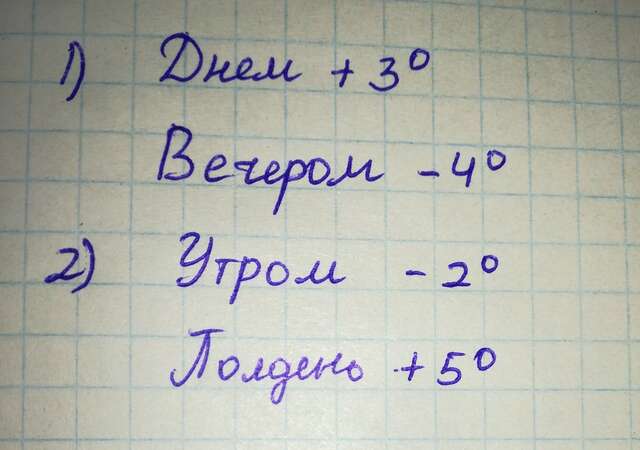 1) Днем +3°
Вечером -4°
2) Утром -2°
Полдень +5°